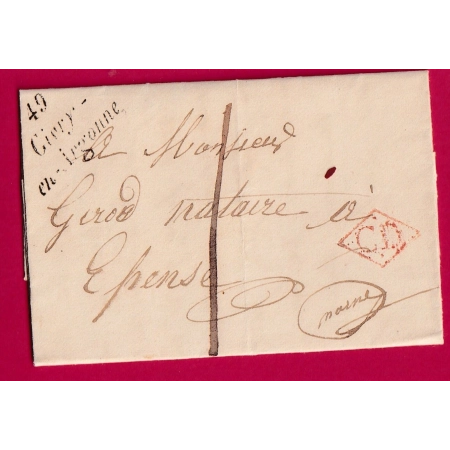 49
Givry-
en-Argonne
A Monsieur
Girod notaire à
Epense
C.D
marne
1